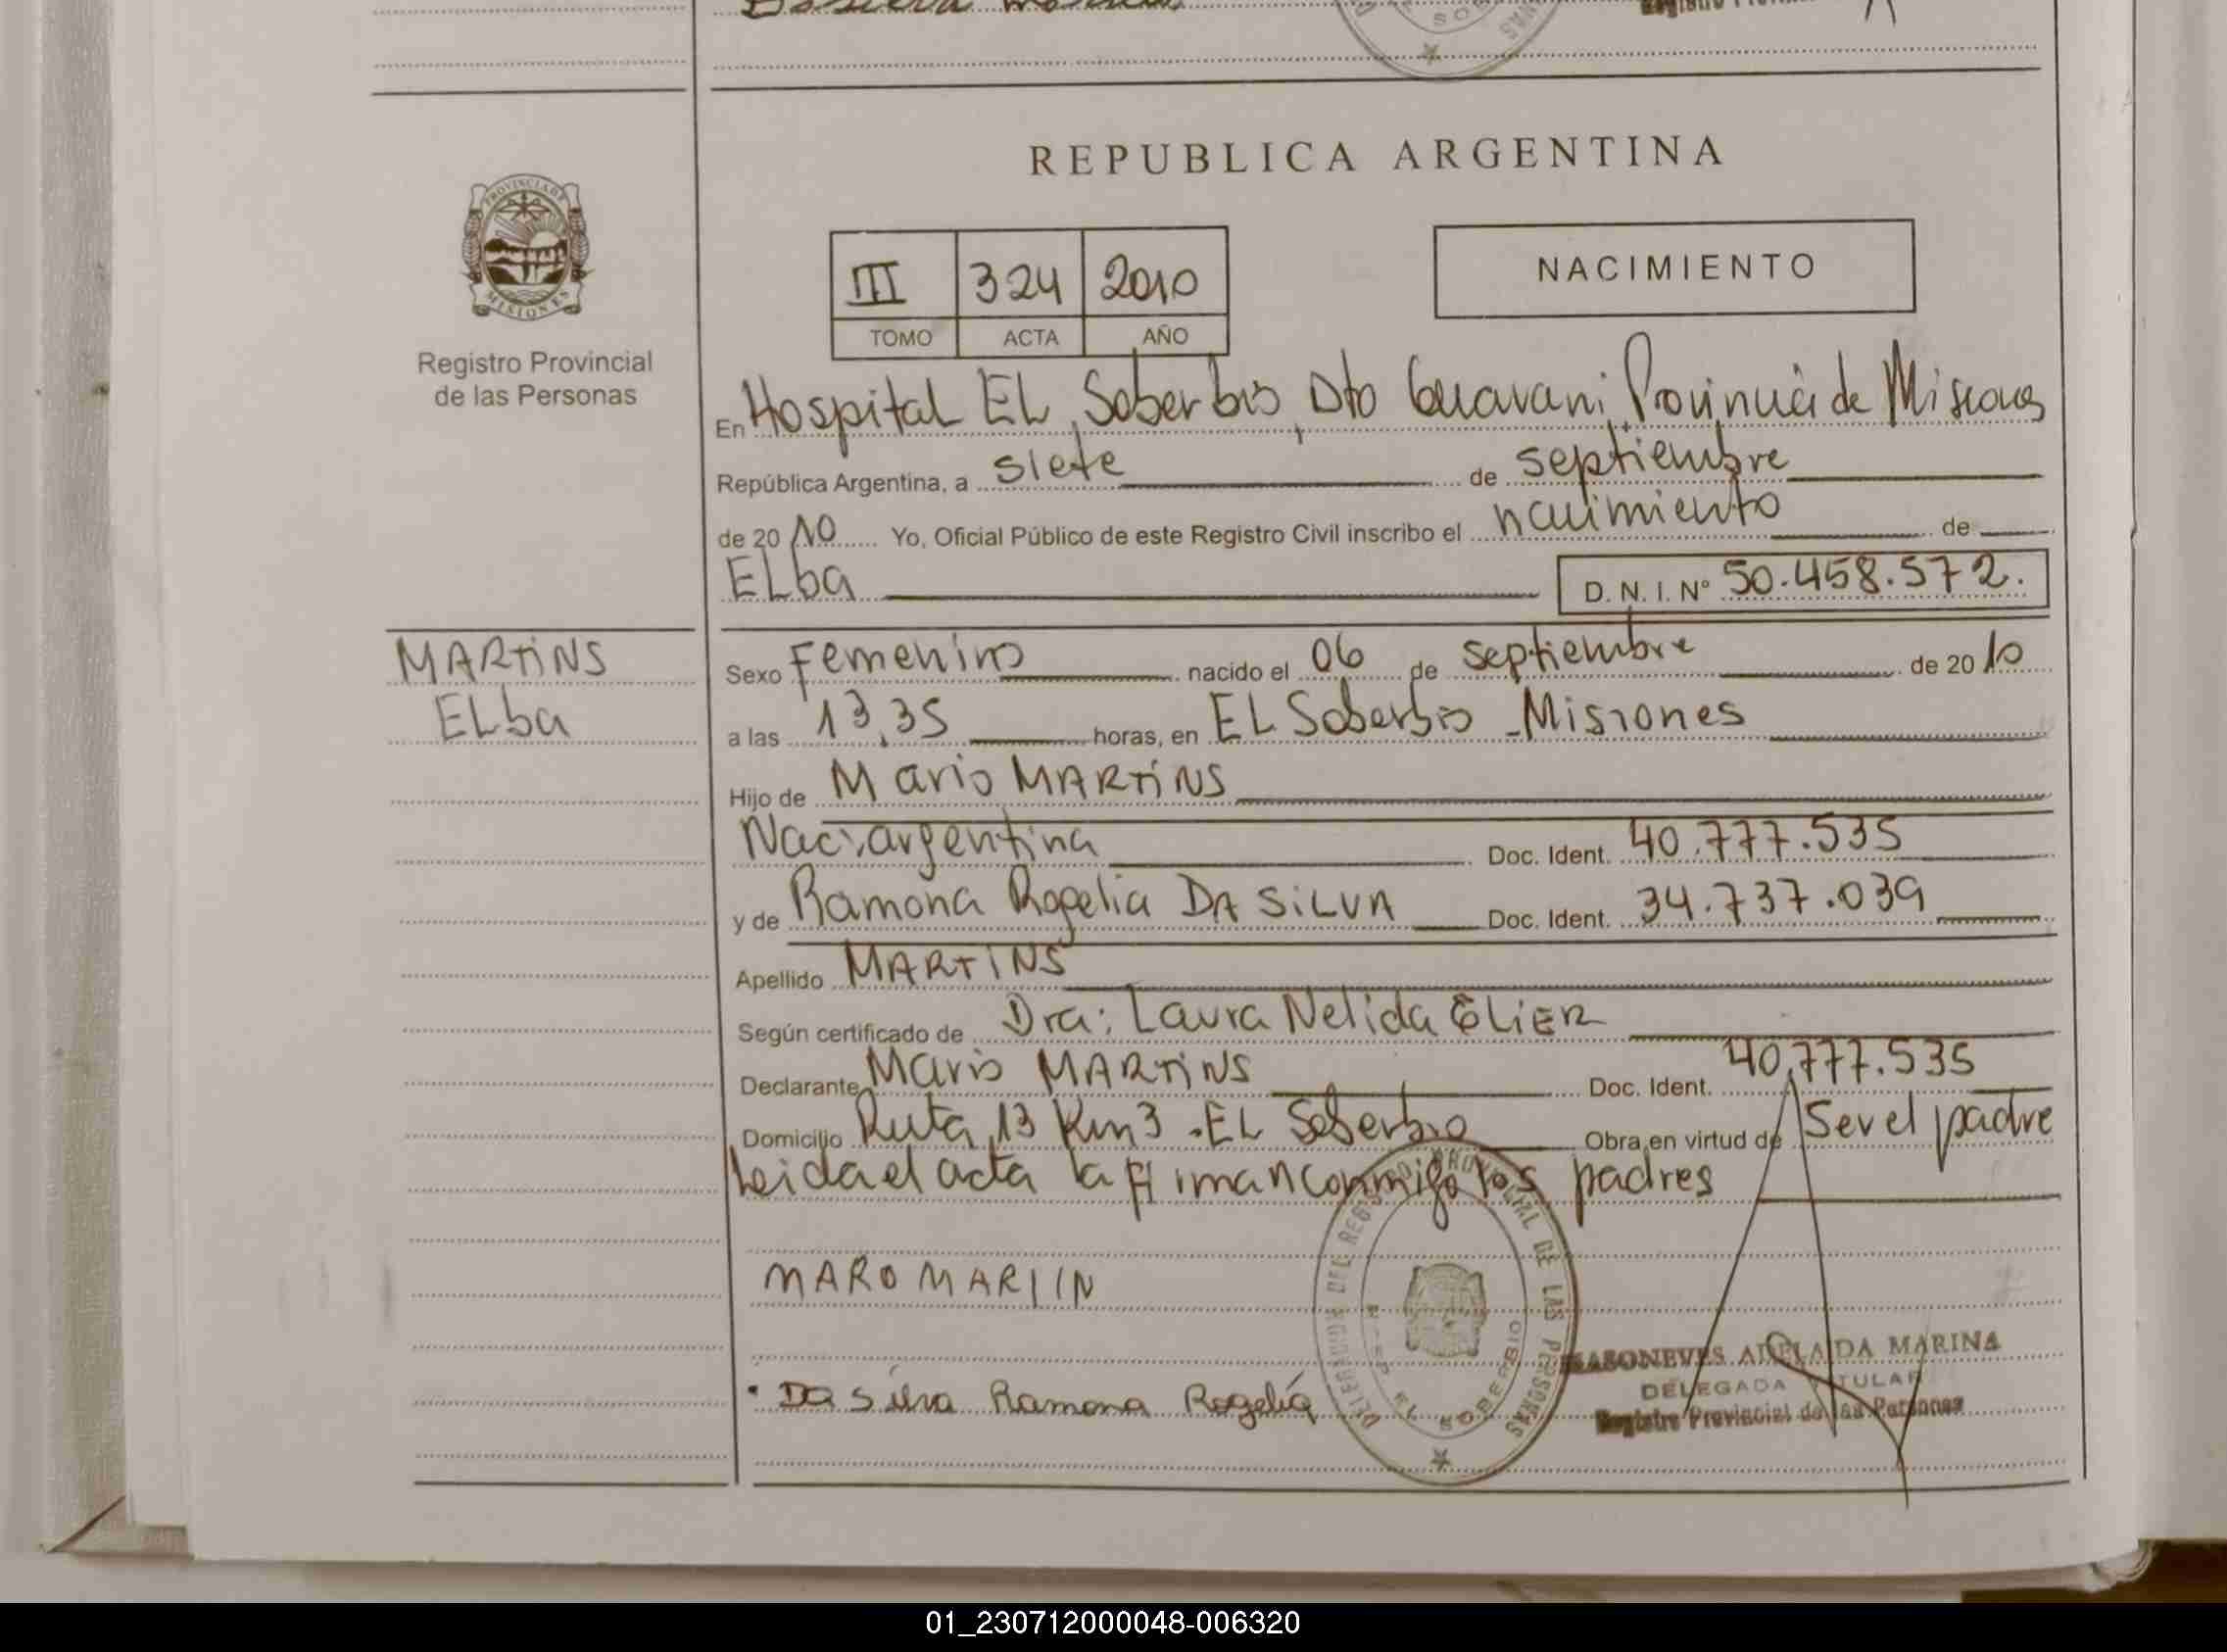 REPUBLICA ARGENTINA
PROVINCIA DE
MISIONES
Registro Provincial
de las Personas
III 324 2010
TOMO ACTA AÑO
NACIMIENTO
En Hospital EL Soberbio, Dto Guarani Provincia de Misiones
República Argentina, a siete de septiembre
de 2010 Yo, Oficial Público de este Registro Civil inscribo el nacimiento de
ELba D. N. I. Nº 50.458.572.
MARTiNS
ELba
Sexo Femenino nacido el 06 de septiembre de 2010
a las 13,35 horas, en EL Soberbio - Misiones
Hijo de Mario MARTiNS
Nac. argentina Doc. Ident. 40.777.535
y de Ramona Rogelia DA SiLVA Doc. Ident. 34.737.039
Apellido MARTiNS
Según certificado de Dra: Laura Nelida ELiER
Declarante Mario MARTiNS Doc. Ident. 40.777.535
Domicilio Ruta 13 Km 3 - EL Soberbio Obra en virtud de Ser el padre
Leida el acta la firman conmigo los padres
MARO MARIIN
DELEGACION DEL REGISTRO PROVINCIAL DE LAS PERSONAS
EL SOBERBIO
Da Silva Ramona Rogelia
ADELAIDA MARINA
DELEGADA TITULAR
Registro Provincial de las Personas
01_230712000048-006320